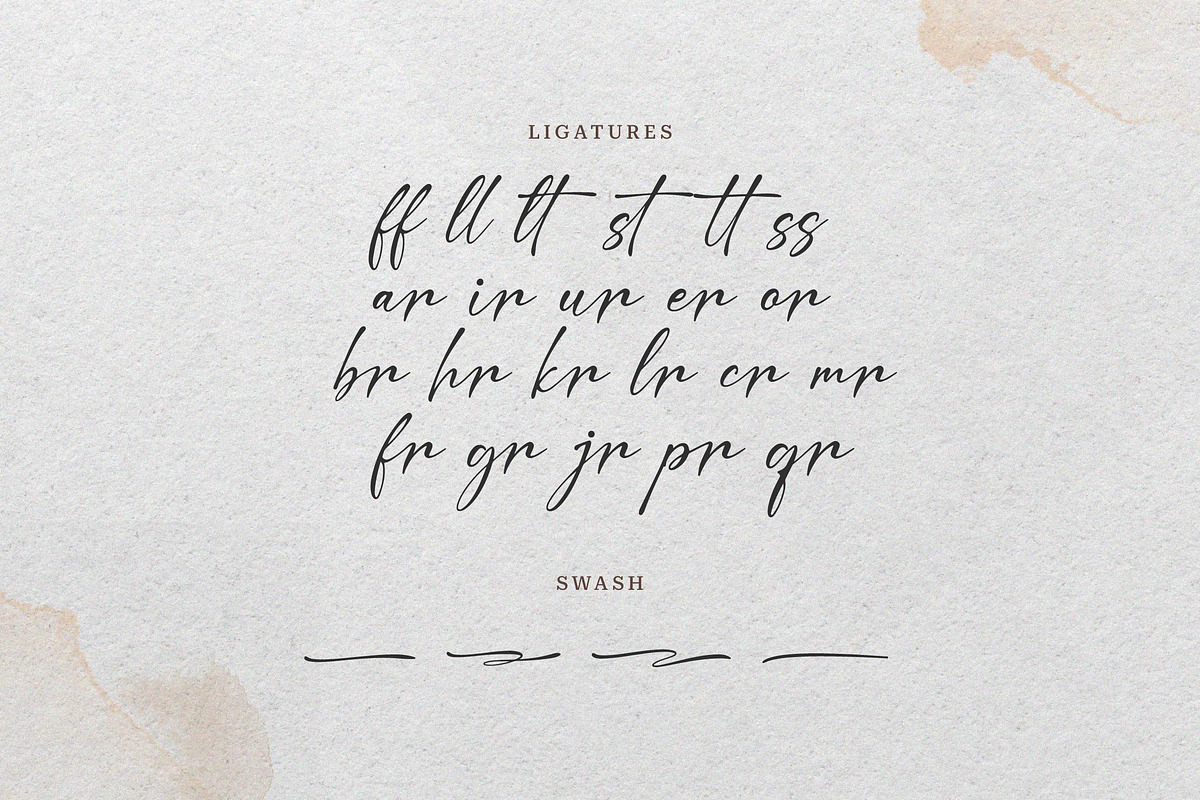 LIGATURES
ff ll lt st tt ss
ar ir ur er or
br hr kr lr cr mr
fr gr jr pr qr
SWASH